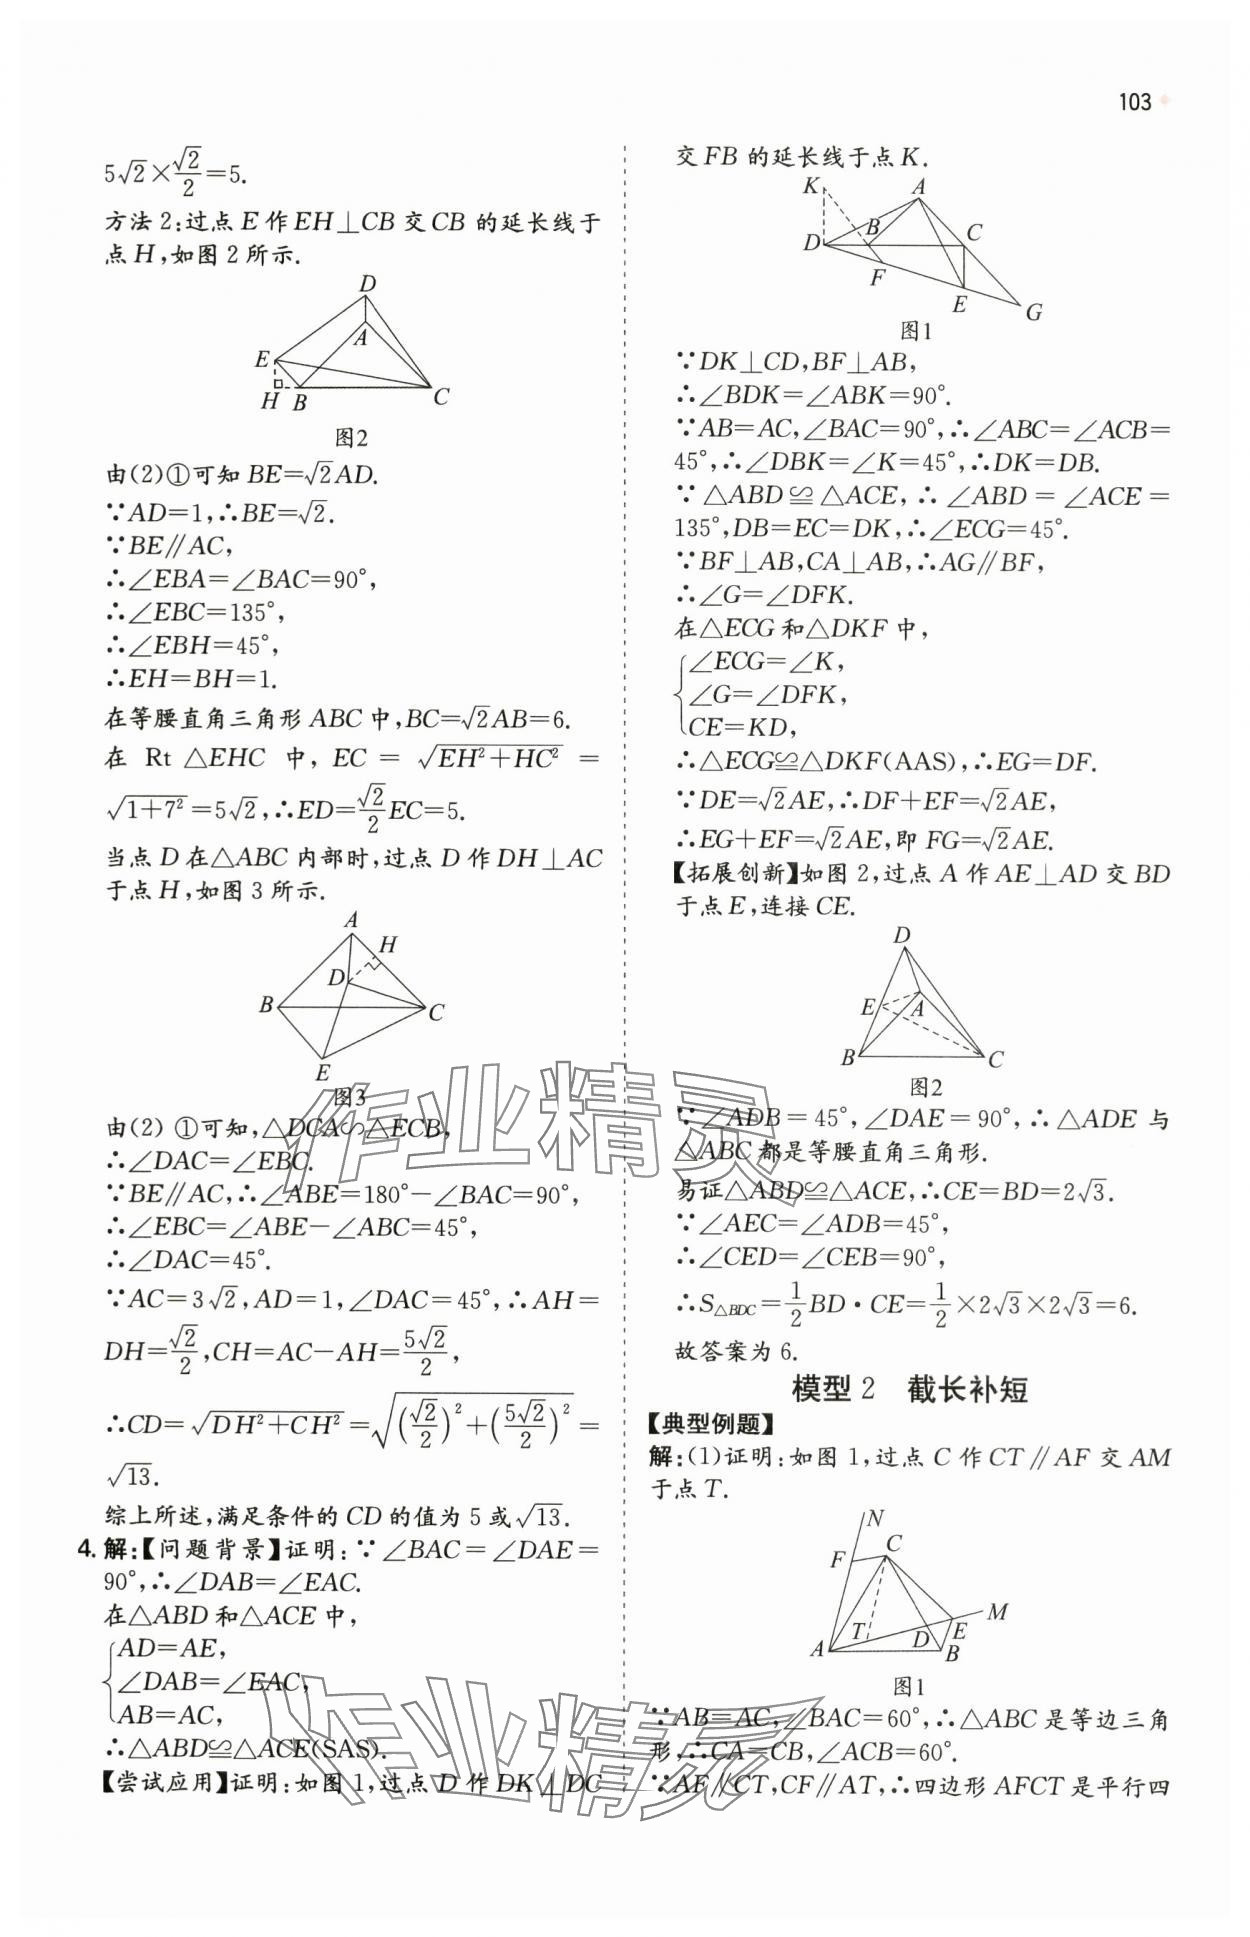 103
5√2×√2/2=5.
方法2:过点E作EH⊥CB交CB的延长线于
点H,如图2所示.
D
A
E
H B C
图2
由(2)①可知BE=√2AD.
∵AD=1,∴BE=√2.
∵BE∥AC,
∴∠EBA=∠BAC=90°,
∴∠EBC=135°,
∴∠EBH=45°,
∴EH=BH=1.
在等腰直角三角形ABC中,BC=√2AB=6.
在 Rt △EHC 中, EC = √(EH²+HC²) =
√(1+7²)=5√2,∴ED=√2/2EC=5.
当点D在△ABC内部时,过点D作DH⊥AC
于点H,如图3所示.
A
H
D
B C
E
图3
由(2) ①可知,△DCA∽△ECB,
∴∠DAC=∠EBC.
∵BE∥AC,∴∠ABE=180°-∠BAC=90°,
∴∠EBC=∠ABE-∠ABC=45°,
∴∠DAC=45°.
∵AC=3√2,AD=1,∠DAC=45°,∴AH=
DH=√2/2,CH=AC-AH=5√2/2,
∴CD=√(DH²+CH²)=√((√2/2)²+(5√2/2)²)=
√13.
综上所述,满足条件的CD的值为5或√13.
4. 解:【问题背景】证明:∵∠BAC=∠DAE=
90°,∴∠DAB=∠EAC.
在△ABD和△ACE中,
{AD=AE,
∠DAB=∠EAC,
AB=AC,
∴△ABD≌△ACE(SAS).
【尝试应用】证明:如图1,过点D作DK⊥DC
交FB的延长线于点K.
K A
D B C
F
E G
图1
∵DK⊥CD,BF⊥AB,
∴∠BDK=∠ABK=90°.
∵AB=AC,∠BAC=90°,∴∠ABC=∠ACB=
45°,∴∠DBK=∠K=45°,∴DK=DB.
∵△ABD≌△ACE,∴∠ABD=∠ACE=
135°,DB=EC=DK,∴∠ECG=45°.
∵BF⊥AB,CA⊥AB,∴AG∥BF,
∴∠G=∠DFK.
在△ECG和△DKF中,
{∠ECG=∠K,
∠G=∠DFK,
CE=KD,
∴△ECG≌△DKF(AAS),∴EG=DF.
∵DE=√2AE,∴DF+EF=√2AE,
∴EG+EF=√2AE,即FG=√2AE.
【拓展创新】如图2,过点A作AE⊥AD交BD
于点E,连接CE.
D
E A
B C
图2
∵∠ADB=45°,∠DAE=90°,∴△ADE与
△ABC都是等腰直角三角形.
易证△ABD≌△ACE,∴CE=BD=2√3.
∵∠AEC=∠ADB=45°,
∴∠CED=∠CEB=90°,
∴S△BDC=1/2BD·CE=1/2×2√3×2√3=6.
故答案为6.
模型2 截长补短
【典型例题】
解:(1)证明:如图1,过点C作CT∥AF交AM
于点T.
N
F C
M
T D E
A B
图1
∵AB=AC,∠BAC=60°,∴△ABC是等边三角
形,∴CA=CB,∠ACB=60°.
∵AF∥CT,CF∥AT,∴四边形AFCT是平行四
作业精灵
作业精灵